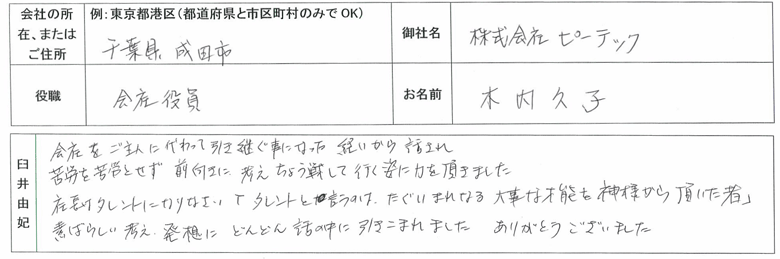 会社の所在、またはご住所
例：東京都港区（都道府県と市区町村のみでOK）
千葉県成田市
御社名
株式会社ピーテック
役職
会社役員
お名前
木内久子
臼井由妃
会社をご主人に代わって引き継ぐ事になった経いから話され
苦労を苦労とせず前向きに考えちょう戦して行く姿に力を頂きました
社長はタレントになりなさい「タレントと言うのは、たぐいまれなる大事な才能を神様から頂いた者」
素ばらしい考え、発想にどんどん話の中に引きこまれました ありがとうございました